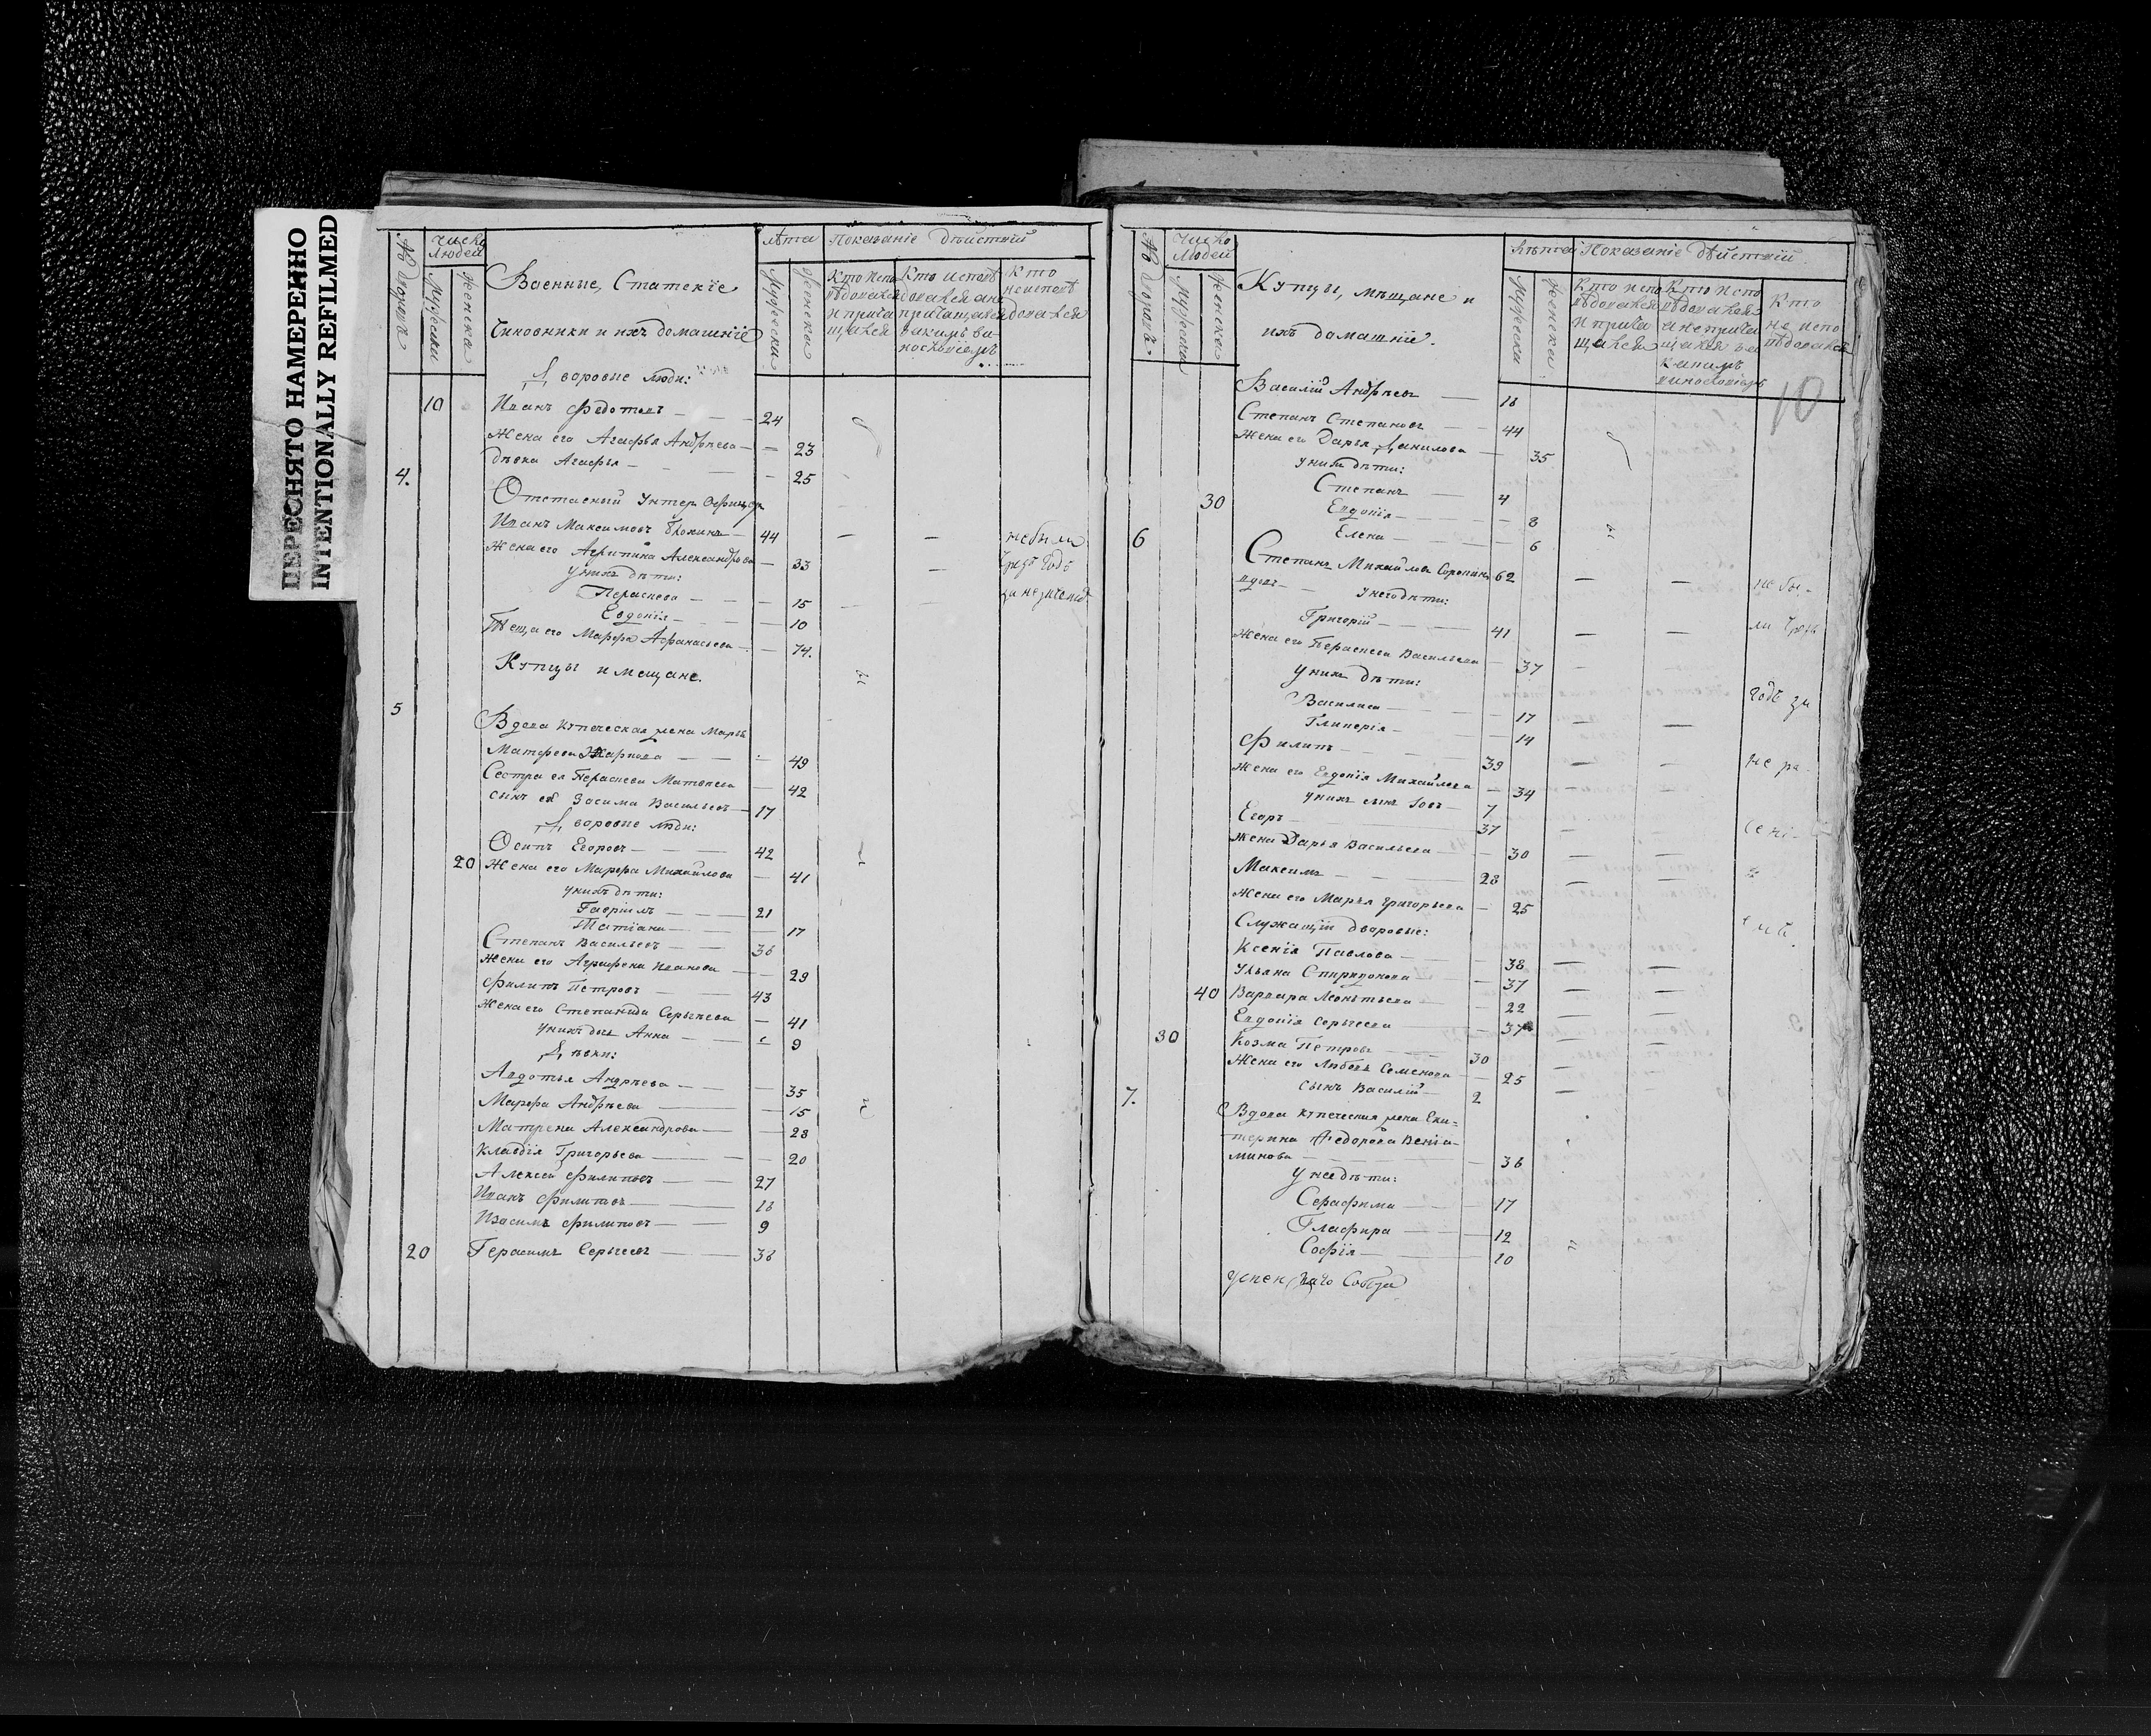 ПЕРЕСНЯТО НАМЕРЕННО
INTENTIONALLY REFILMED
№ дворовъ
Число людей
Мужеска
Женска
Военные, Статскіе
Чиновники и ихъ домашніе
лѣта
Мужеска
Женска
Показаніе дѣйствій
Кто испо
вѣдовался
и прича
щался
Кто исповѣ
довался а не
причащался
и какимъ ви
нословіемъ
Кто
не исповѣ
довался
Дворовые люди:
10 Иванъ Федотовъ — 24
Жена его Агафья Андрѣева — 23
дѣвка Агафья — 25
4.
Отставный Унтеръ Офицеръ
Иванъ Максимовъ — 44 — — не были
Жена его Агрипина Александрова — 33 — годъ
У нихъ дѣти:
Параскева — 15
Евдокія — 10
Тѣща его Марфа Афанасьева — 74.
Купцы и мещане.
5
Вдова купеческая жена Марья
Матфеева — 49
Сестра ея Параскева Матвѣева — 42
сынъ ея Зосима Васильевъ — 17
Дворовые люди:
Осипъ Егоровъ — 42
20 Жена его Марфа Михайлова — 41
У нихъ дѣти:
Гавріилъ — 21
Татіана — 17
Степанъ Васильевъ — 36
Жена его Аграфена Иванова — 29
Филипъ Петровъ — 43
Жена его Степанида Сергѣева — 41
У нихъ дочь Анна — 9
Дѣвки:
Авдотья Андрѣева — 35
Марфа Андрѣева — 15
Матрена Александрова — 28
Клавдія Григорьева — 20
Алексей Филиповъ — 27
Иванъ Филиповъ — 16
Изосимъ Филиповъ — 9
20 Герасимъ Сергѣевъ — 36
№ дворовъ
Число Людей
Мужеска
Женска
Купцы, мѣщане и
ихъ домашніе.
Лѣта
Мужеска
Женска
Показаніе дѣйствій
Кто испо
вѣдовался
и прича
щался
Кто испо
вѣдовался
а не прича
щался и
какимъ
винословіемъ
Кто
не испо
вѣдовался
10
Василій Андрѣевъ — 16
Степанъ Степановъ — 44
Жена его Дарья Данилова — 35
у нихъ дѣти:
Степанъ — 4
30 Евдокія — 8
Елена — 6
6
Степанъ Михайловъ 62 — — не бы-
вдовъ у него дѣти:
Григорій — 41 — — ли
Жена его Параскева Васильева — 37 —
У нихъ дѣти:
Василиса — 17 — — годъ за
Гликерія — 14
Филипъ — 39 — — не ра-
Жена его Евдокія Михайлова — 34 —
у нихъ сынъ Іовъ — 7
Егоръ — 37
Жена Дарья Васильева — 30 — —
Максимъ — 28 — —
Жена его Марья Григорьева — 25
Служащіи дворовые:
Ксенія Павлова — 38 — —
Ульяна Спиридонова — 37 — —
40 Варвара Леонтьева — 22 — —
Евдокія Сергеева — 37
30 Козма Петровъ — 30
Жена его Любовь Семенова — 25
сынъ Василій — 2
7.
Вдова купеческая жена Ека-
терина Федорова Веніа-
минова — 36
У нее дѣти:
Серафима — 17
Глафира — 12
Софія — 10